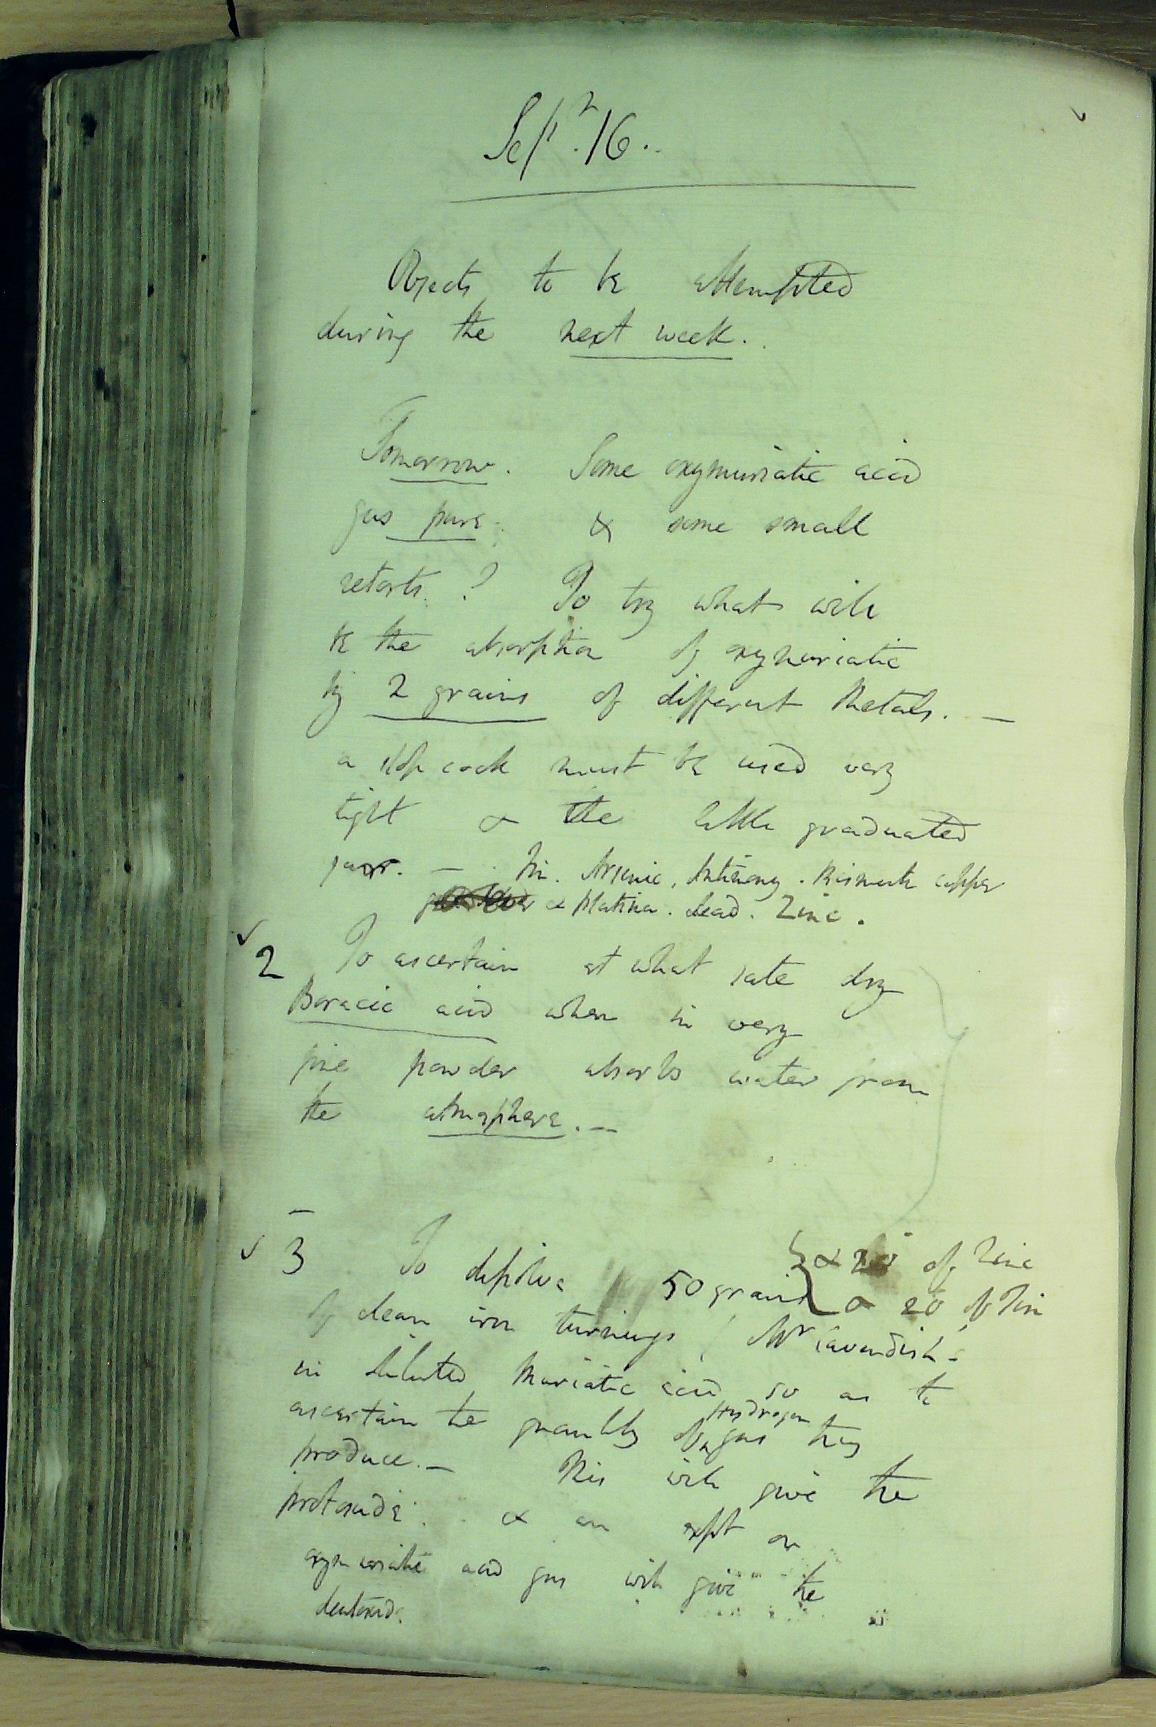 Sept.r 16.
Objects to be attempted
during the next week.
Tomorrow. Some oxymuriatic acid
gas pure. & some small
retorts? To try what will
be the absorption of oxymuriatic
by 2 grains of different Metals. —
a stop cock must be used very
tight & the little graduated
jar. — Tin. Arsenic. Antimony. Bismuth copper
& platina. Lead. Zinc.
2 To ascertain at what rate dry
Boracic acid when in very
fine powder absorbs water from
the atmosphere. —
3 To dissolve 50 grains { & 20 of Zinc
& 20 of Tin
of clean iron turnings (Mr Cavendish's
in diluted Muriatic acid so as to
ascertain the quantity of Hydrogen gas they
produce. — This will give the
protoxide. & an expt on
oxymuriatic acid gas will give the
deutoxide.